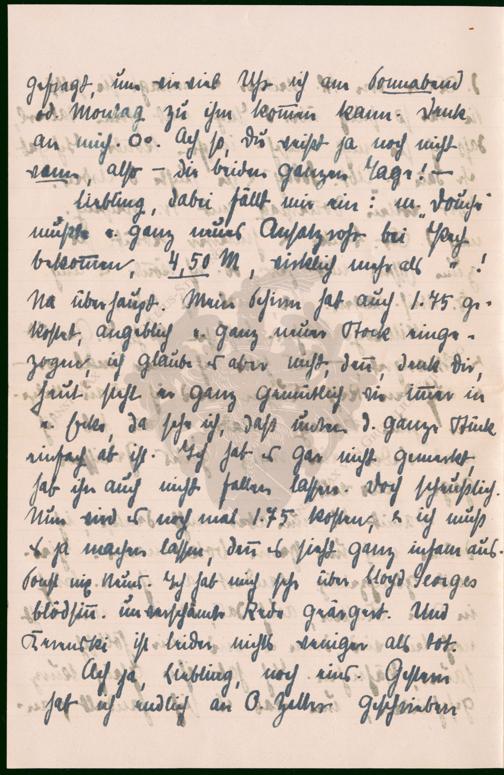 gefragt, um wieviel Uhr ich am Sonnabend
od. Montag zu ihm kommen kann. Denk
an mich. Oo. Ach so, Du weißt ja noch nicht
wann, also – die beiden ganzen Tage! –
Liebling, dabei fällt mir ein: m. „Douche"
mußte e. ganz neues Ansatzrohr bei
bekommen, 4,50 M, wirklich mehr als " !
Na überhaupt. Mein Schirm hat auch 1.75 ge-
kostet, angeblich e. ganz neuer Stock einge-
zogen, ich glaube es aber nicht, denn, denk Dir,
heut steht er ganz gemütlich wie immer in
e. Ecke, da sehe ich, daß unten d. ganze Stück
einfach ab ist. Ich hab es gar nicht gemerkt,
hab ihn auch nicht fallen lassen. Doch scheußlich.
Nun wird es noch mal 1.75 kosten, & ich muß
es ja machen lassen, denn es sieht ganz infam aus.
Sonst nix Neues. Ich hab mich sehr über Lloyd Georges
blödsinn. unverschämte Rede geärgert. Und
Kerenski ist leider nichts weniger als tot.
Ach ja, Liebling, noch eins. Gestern
hab ich endlich an O. geschrieben